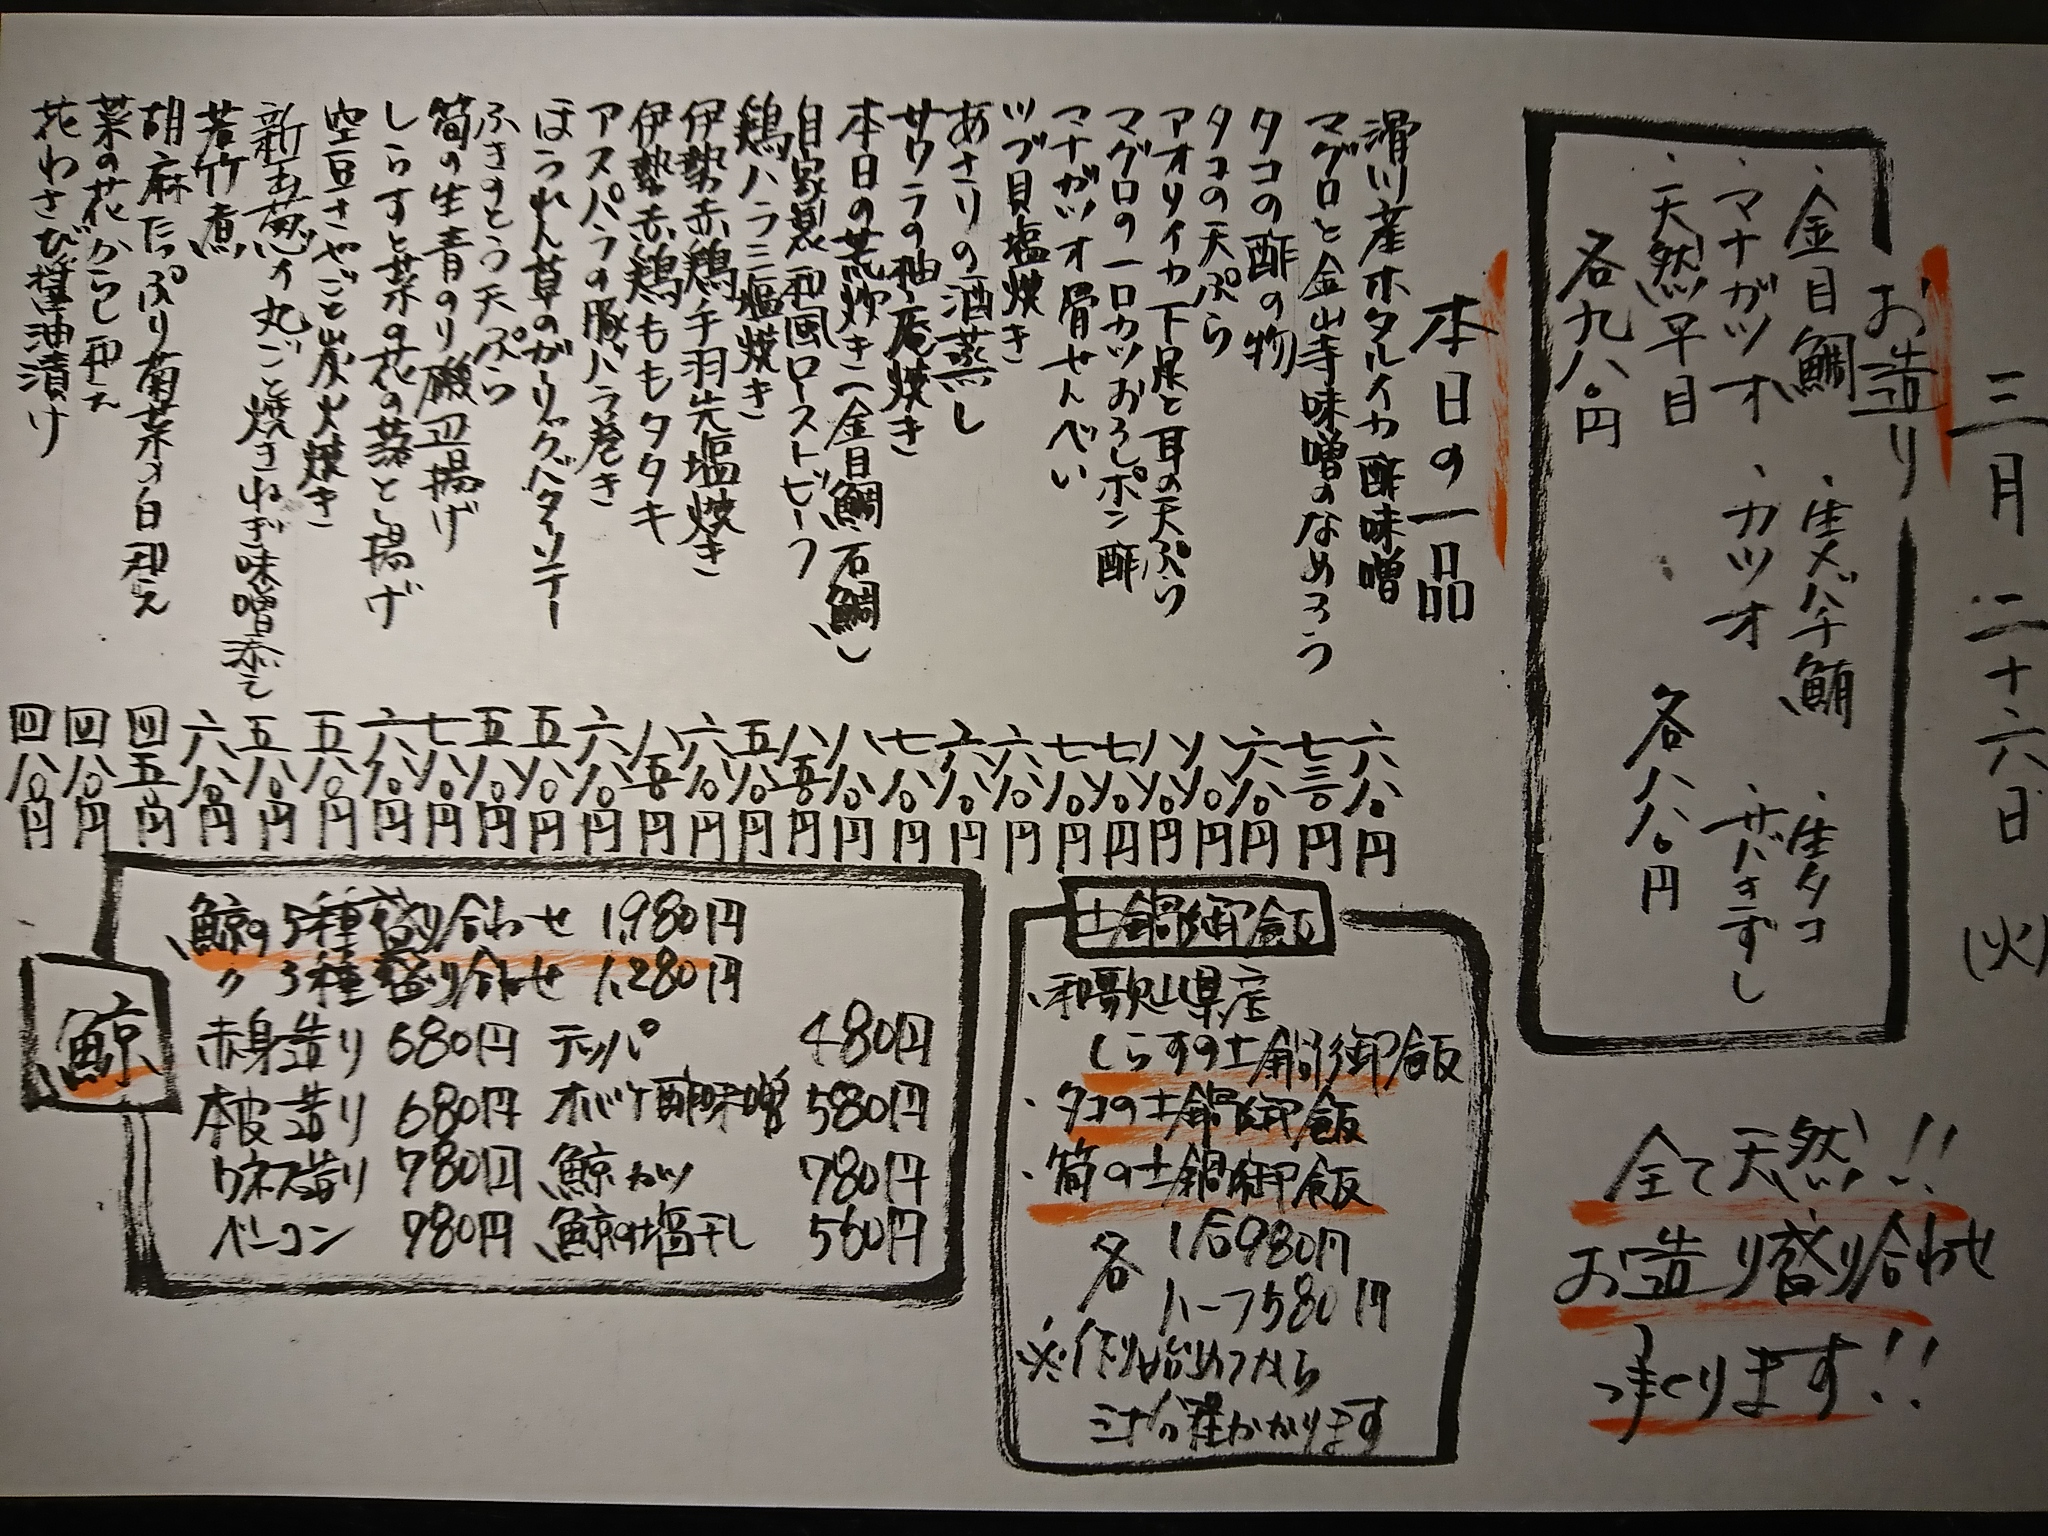 三月二十六日(火)
お造り
・金目鯛 ・生メバチ鮪 ・生タコ
・マナガツオ ・カツオ ・サバきずし
・天然平目
各九八〇円 各八八〇円
全て天然!!
お造り盛り合わせ
承ります!!
本日の一品
滑川産ホタルイカ酢味噌 六八〇円
マグロと金山寺味噌のなめろう 七三〇円
タコの酢の物 六八〇円
タコの天ぷら 八八〇円
アオリイカ下足と耳の天ぷら 八八〇円
マグロの一口カツおろしポン酢 七八〇円
マナガツオ骨せんべい 七八〇円
ツブ貝塩焼き 六八〇円
あさりの酒蒸し 六八〇円
サワラの柚庵焼き 七八〇円
本日の荒炊き(金目鯛、石鯛) 八八〇円
自家製和風ローストビーフ 八五〇円
鶏ハラミ塩焼き 五八〇円
伊勢赤鶏手羽先塩焼き 六八〇円
伊勢赤鶏ももタタキ 八五〇円
アスパラの豚バラ巻き 六八〇円
ほうれん草のガーリックバターソテー 五八〇円
ふきのとう天ぷら 五八〇円
筍の生青のり磯辺揚げ 七八〇円
しらすと菜の花の落とし揚げ 六八〇円
空豆さやごと炭火焼き 五八〇円
新玉葱の丸ごと焼きねぎ味噌添え 五八〇円
若竹煮 六八〇円
胡麻たっぷり菊菜の白和え 四五〇円
菜の花からし和え 四八〇円
花わさび醤油漬け 四八〇円
土鍋御飯
・和歌山県産
しらすの土鍋御飯
・タコの土鍋御飯
・筍の土鍋御飯
各 1合980円
ハーフ580円
※作り始めてから
三十分程かかります
鯨
鯨の5種盛り合わせ 1,980円
〃 3種盛り合わせ 1,280円
赤身造り 680円 テッパ 480円
本皮造り 680円 オバケ酢味噌 580円
ウネス造り 780円 鯨カツ 780円
ベーコン 980円 鯨の塩干し 560円